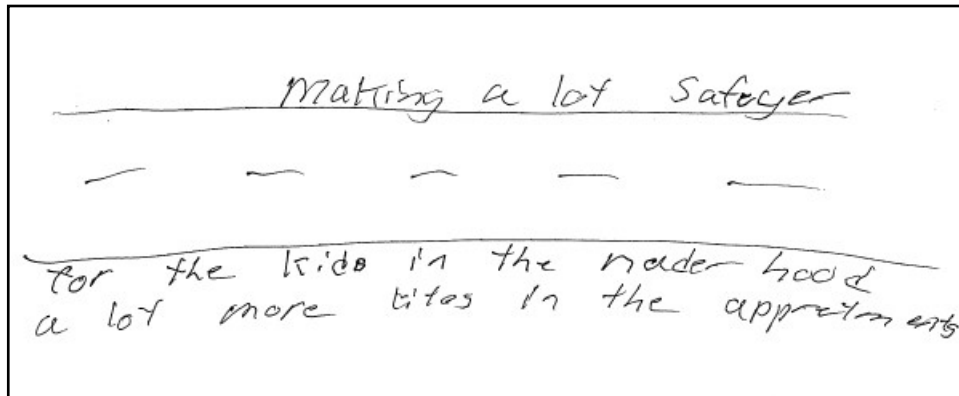 making a lot safeyer
for the kids in the nader hood
a lot more in the appretments